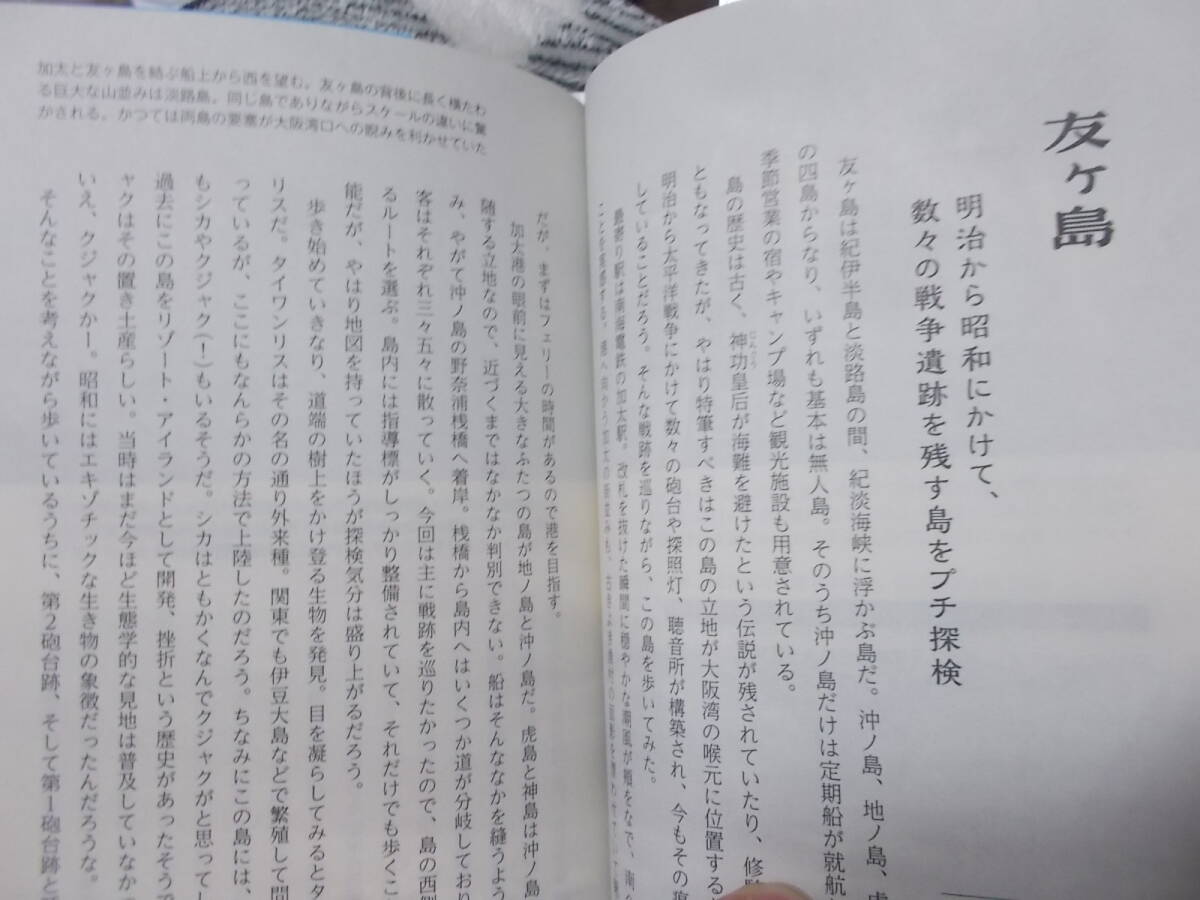 友ヶ島
明治から昭和にかけて、
数々の戦争遺跡を残す島をプチ探検
友ヶ島は紀伊半島と淡路島の間、紀淡海峡に浮かぶ島だ。沖ノ島、地ノ島、虎
の四島からなり、いずれも基本は無人島。そのうち沖ノ島だけは定期船が就航
季節営業の宿やキャンプ場など観光施設も用意されている。
島の歴史は古く、神功皇后が海難を避けたという伝説が残されていたり、修験
ともなってきたが、やはり特筆すべきはこの島の立地が大阪湾の喉元に位置する
明治から太平洋戦争にかけて数々の砲台や探照灯、聴音所が構築され、今もその痕
していることだろう。そんな戦跡を巡りながら、この島を歩いてみた。
最寄り駅は南海電鉄の加太駅。改札を抜けた瞬間に穏やかな潮風が頬をなで、南
ことを実感する。港へ向かう加太の街並みも、古き
加太と友ヶ島を結ぶ船上から西を望む。友ヶ島の背後に長く横たわ
る巨大な山並みは淡路島。同じ島でありながらスケールの違いに驚
かされる。かつては両島の要塞が大阪湾口への睨みを利かせていた
だが、まずはフェリーの時間があるので港を目指す。
加太港の眼前に見える大きなふたつの島が地ノ島と沖ノ島だ。虎島と神島は沖ノ島
随する立地なので、近づくまではなかなか判別できない。船はそんななかを縫うよう
み、やがて沖ノ島の野奈浦桟橋へ着岸。桟橋から島内へはいくつか道が分岐しており
客はそれぞれ三々五々に散っていく。今回は主に戦跡を巡りたかったので、島の西側
るルートを選ぶ。島内には指導標がしっかり整備されていて、それだけでも歩くこ
能だが、やはり地図を持っていたほうが探検気分は盛り上がるだろう。
歩き始めていきなり、道端の樹上をかけ登る生物を発見。目を凝らしてみるとタ
リスだ。タイワンリスはその名の通り外来種。関東でも伊豆大島などで繁殖して問
っているが、ここにもなんらかの方法で上陸したのだろう。ちなみにこの島には、
もシカやクジャク(！)もいるそうだ。シカはともかくなんでクジャクがと思ってし
過去にこの島をリゾート・アイランドとして開発、挫折という歴史があったそうで
ャクはその置き土産らしい。当時はまだ今ほど生態学的な見地は普及していなか
いえ、クジャクかー。昭和にはエキゾチックな生き物の象徴だったんだろうな。
そんなことを考えながら歩いているうちに、第2砲台跡、そして第1砲台跡と